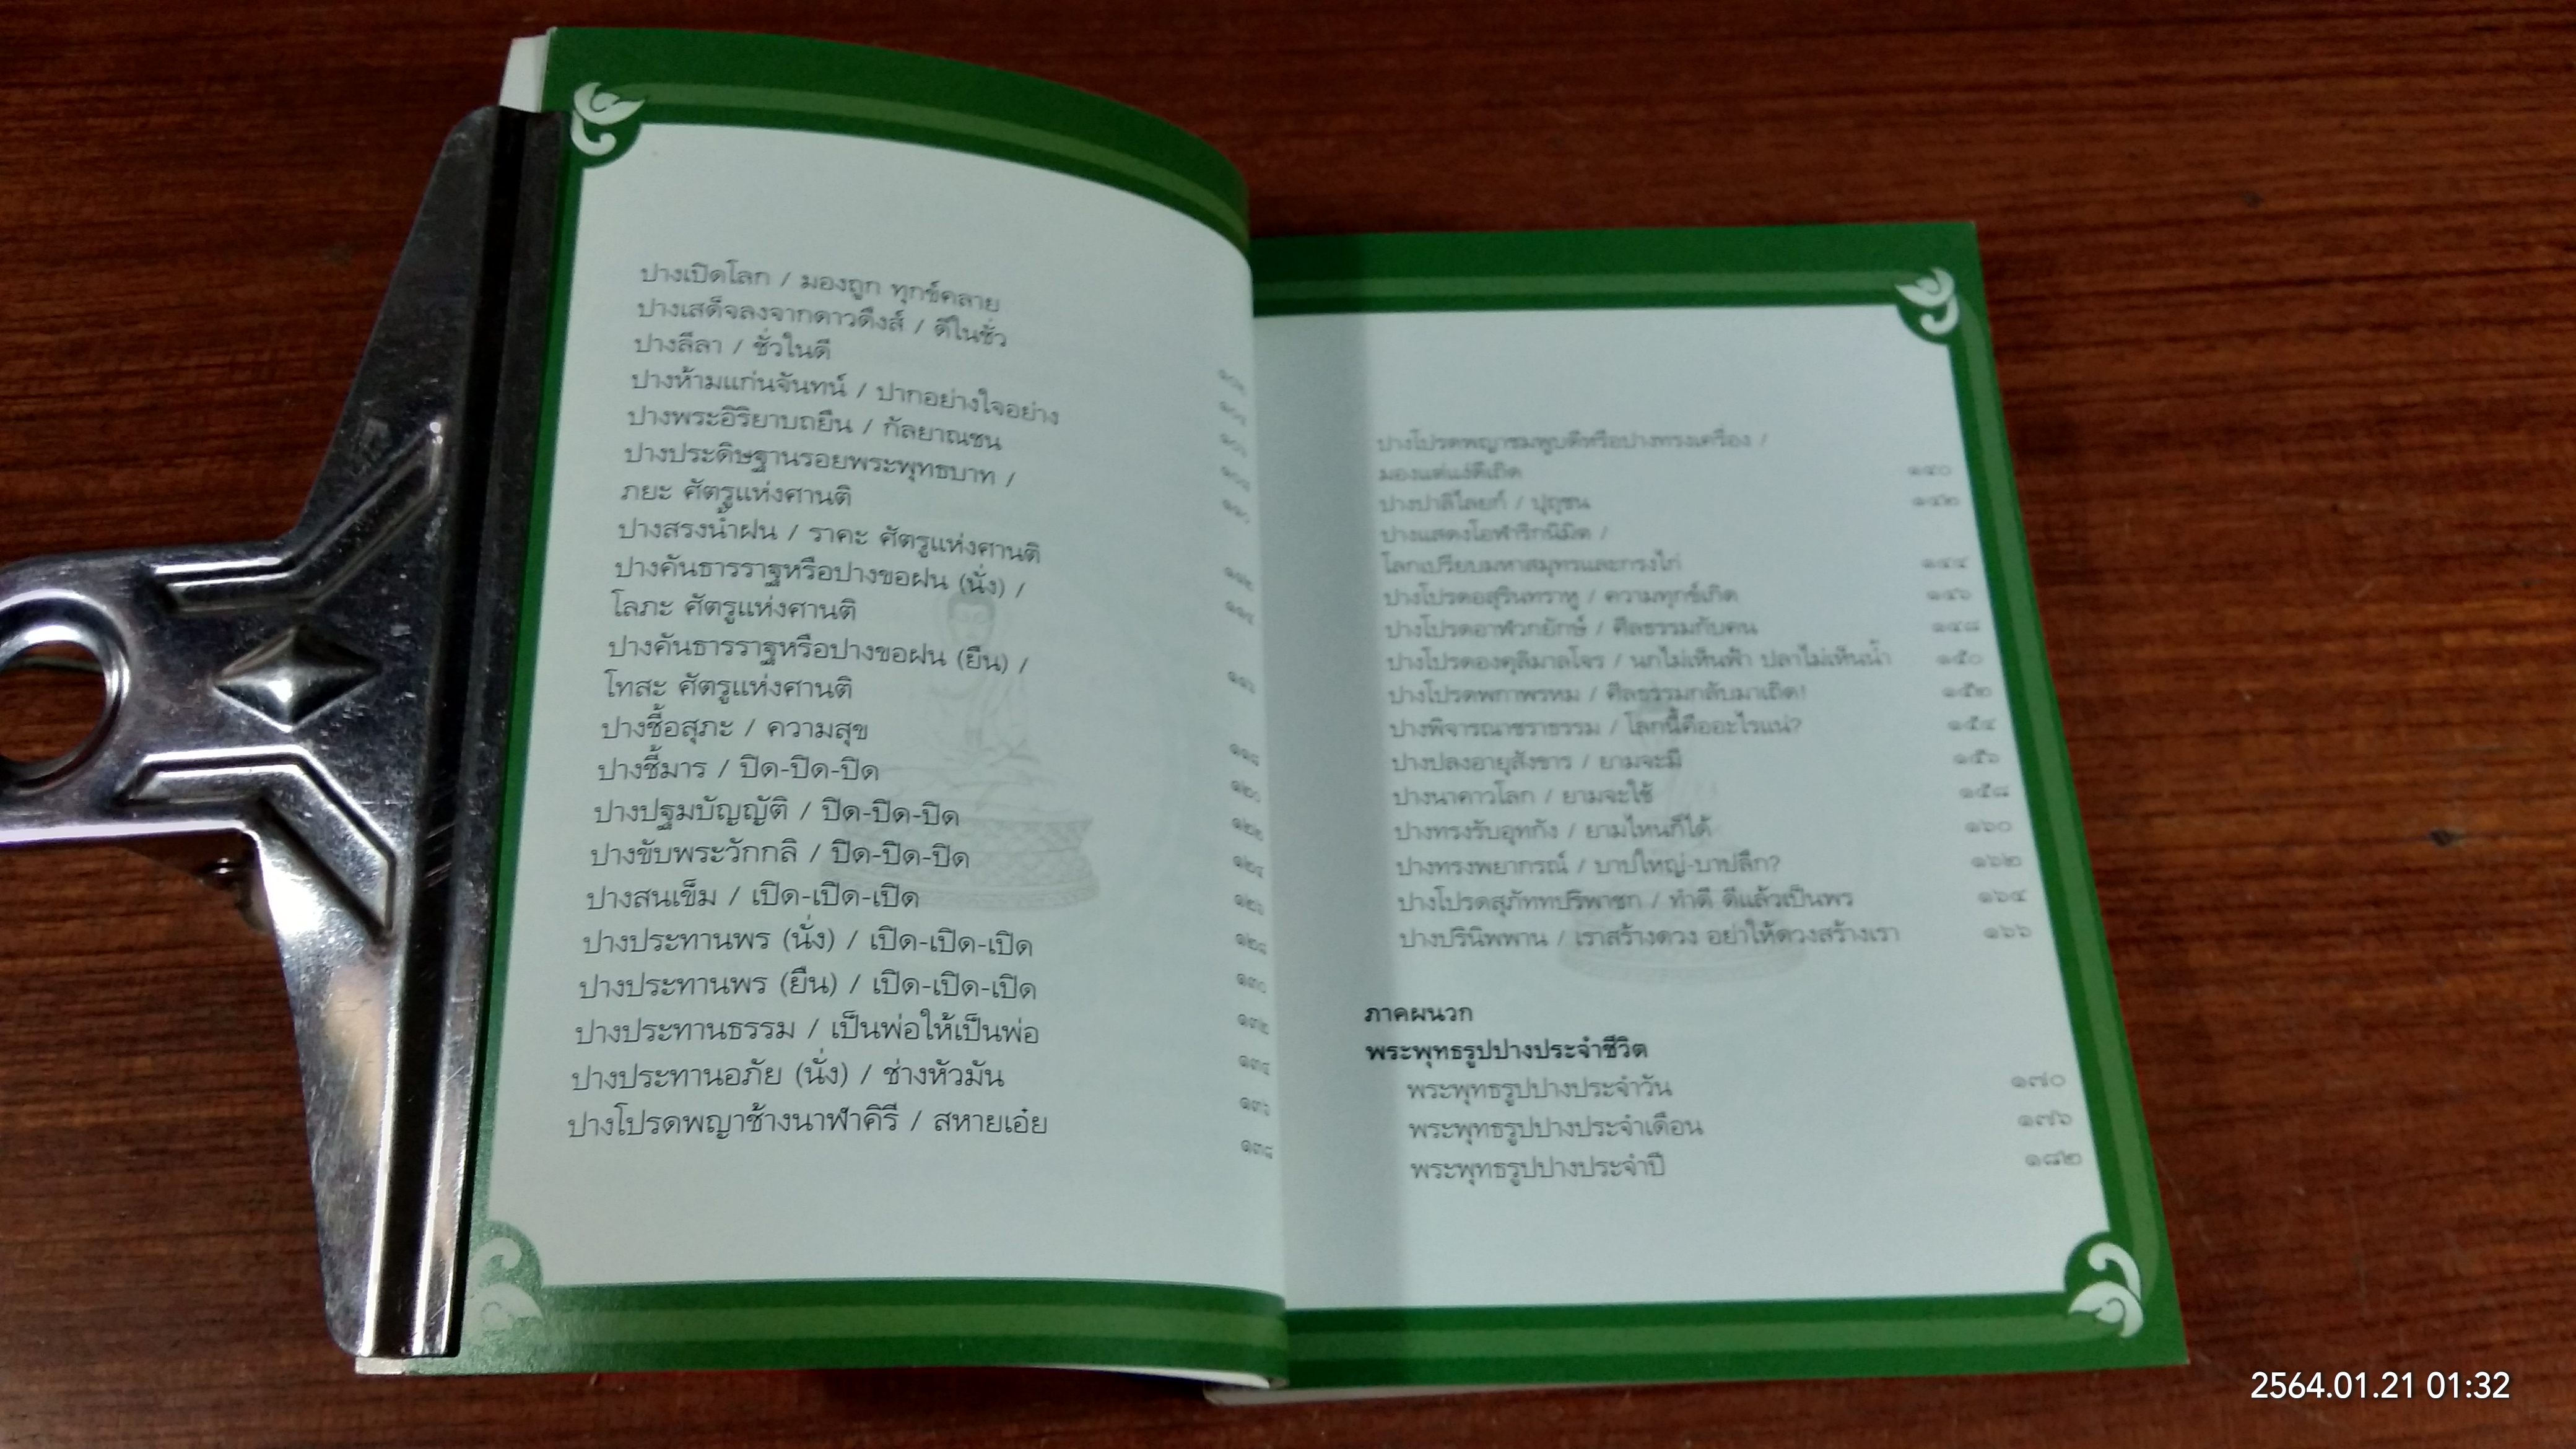 ปางเปิดโลก / มองถูก ทุกข์คลาย
ปางเสด็จลงจากดาวดึงส์ / ดีในชั่ว
ปางลีลา / ชั่วในดี
ปางห้ามแก่นจันทน์ / ปากอย่างใจอย่าง
ปางพระอิริยาบถยืน / กัลยาณชน
ปางประดิษฐานรอยพระพุทธบาท /
ภยะ ศัตรูแห่งศานติ
ปางสรงน้ำฝน / ราคะ ศัตรูแห่งศานติ
ปางคันธารราฐหรือปางขอฝน (นั่ง) /
โลภะ ศัตรูแห่งศานติ
ปางคันธารราฐหรือปางขอฝน (ยืน) /
โทสะ ศัตรูแห่งศานติ
ปางชี้อสุภะ / ความสุข
ปางชี้มาร / ปิด-ปิด-ปิด
ปางปฐมบัญญัติ / ปิด-ปิด-ปิด
ปางขับพระวักกลิ / ปิด-ปิด-ปิด
ปางสนเข็ม / เปิด-เปิด-เปิด
ปางประทานพร (นั่ง) / เปิด-เปิด-เปิด
ปางประทานพร (ยืน) / เปิด-เปิด-เปิด
ปางประทานธรรม / เป็นพ่อให้เป็นพ่อ
ปางประทานอภัย (นั่ง) / ช่างหัวมัน
ปางโปรดพญาช้างนาฬาคิรี / สหายเอ๋ย
ปางโปรดพญาชมพูบดีหรือปางทรงเครื่อง /
มองแต่แง่ดีเถิด ๑๔๐
ปางปาลิไลยก์ / ปุถุชน ๑๔๒
ปางแสดงโอฬาริกนิมิต /
โลกเปรียบมหาสมุทรและกรงไก่ ๑๔๔
ปางโปรดอสุรินทราหู / ความทุกข์เกิด ๑๔๖
ปางโปรดอาฬวกยักษ์ / ศีลธรรมกับคน ๑๔๘
ปางโปรดองคุลิมาลโจร / นกไม่เห็นฟ้า ปลาไม่เห็นน้ำ ๑๕๐
ปางโปรดพกาพรหม / ศีลธรรมกลับมาเถิด! ๑๕๒
ปางพิจารณาชราธรรม / โลกนี้คืออะไรแน่? ๑๕๔
ปางปลงอายุสังขาร / ยามจะมี ๑๕๖
ปางนาคาวโลก / ยามจะใช้ ๑๕๘
ปางทรงรับอุทกัง / ยามไหนก็ได้ ๑๖๐
ปางทรงพยากรณ์ / บาปใหญ่-บาปลึก? ๑๖๒
ปางโปรดสุภัททปริพาชก / ทำดี ดีแล้วเป็นพร ๑๖๔
ปางปรินิพพาน / เราสร้างดวง อย่าให้ดวงสร้างเรา ๑๖๖
ภาคผนวก
พระพุทธรูปปางประจำชีวิต
พระพุทธรูปปางประจำวัน ๑๗๐
พระพุทธรูปปางประจำเดือน ๑๗๖
พระพุทธรูปปางประจำปี ๑๘๒
2564.01.21 01:32